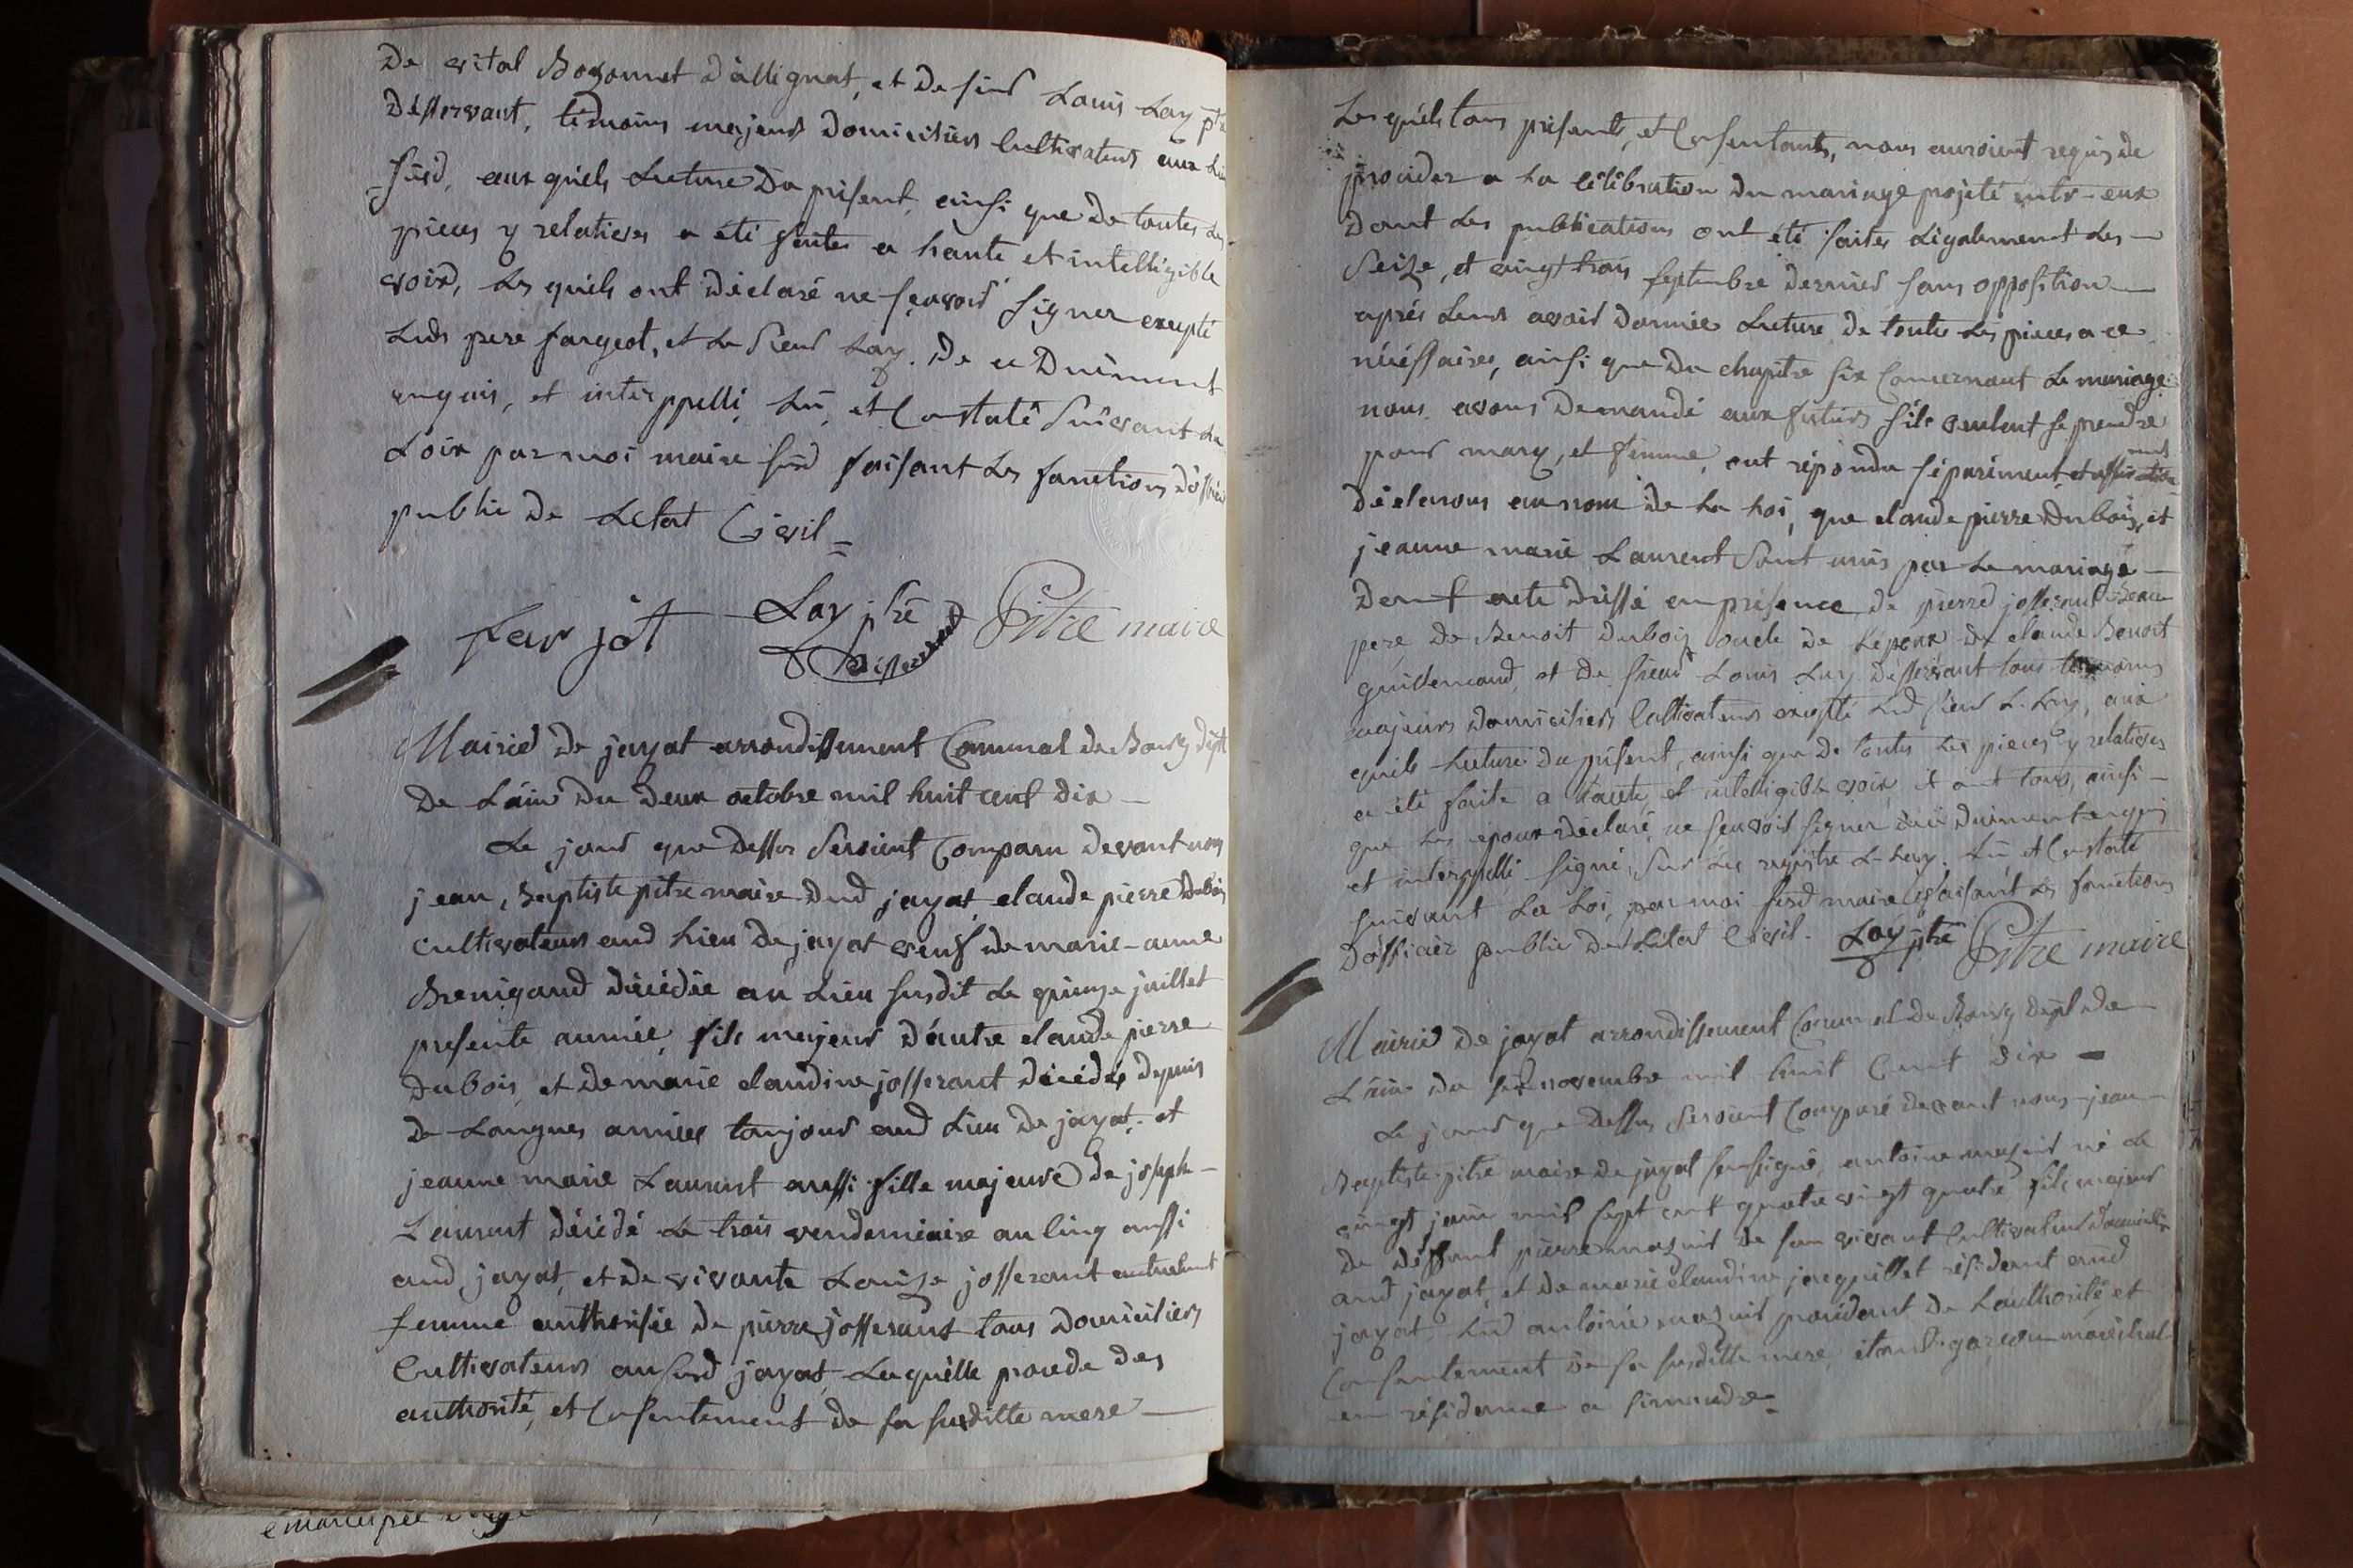 De vital Boyonnet d'allignat, et de sieur Louis Lay ptre
désservant, témoins majeurs domiciliés cultivateurs aux lieu
susd, aux quéls lecture du présent, ainsi que de toutes les
pièces y relatives a été faite a haute et intelligible
voix, les quéls ont déclaré ne sçavoir signer excepté
led pere farjeot, et le sieur Lay. de ce duëment
enquis, et interppellé, lu, et constaté suivant la
Loix par moi maire susd faisant les fonctions d'officier
public de L'état Civil =
farjot Lay ptre désservant Pitre maire
Mairie de jayat arrondissement Communal de Bourg dept
de L'ain du deux octobre mil huit cent dix
Le jour que dessus seroient Comparu devant nous
jean, Baptiste pitre maire dud jayat, claude pierre dubois
cultivateur aud lieu de jayat veuf de marie-anne
Brenigand décédée au lieu susdit le quinze juillet
présente année, fils majeur d'autre claude pierre
dubois, et de marie claudine josserant décédés depuis
de longues années toujour aud lieu de jayat, et
jeanne marie Laurent aussi fille majeure de joseph
Laurent décédé le trois vendemiaire an cinq aussi
aud jayat, et de vivante Louise josserant actuelmt
femme authorisée de pierre josserant tous domiciliés
Cultivateurs au susd jayat, laquélle procede des
authorité, et consentement de sa susditte mere
Les quéls tous présents, et consentants, nous auroient requis de
procéder a la célébration du mariage projété entr-eux
dont les publications ont été faites légalement les
seize, et vingt trois septembre dernier sans opposition
aprés leurs avoir donnée lecture de toutes les pieces a ce
nécéssaires, ainsi que du chapitre six concernant le mariage
nous avons demandé aux futurs s'ils veulent se prendre
pour mary, et femme, ont répondu séparément, et affirmativement
déclarons au nom de la loi, que claude pierre dubois, et
jeanne marie Laurent sont unis par le mariage
dont acte dréssé en présence de pierre josserant beau
pere de Benoit dubois oncle de l'époux de claude Benoit
guillemaud, et de sieur Louis Lay désservant tous témoins
majeurs domiciliés Cultivateurs excepté led sieur L. Lay, aux
quéls lecture du présent, ainsi que de toutes les pieces y relatives
a été faite a haute et intelligible voix, et ont tous, ainsi
que les époux déclaré ne sçavoir signer de ce duëment enquis
et interppellé signé, sur les registre L. Lay. lu et constaté
suivant la Loi, par moi susd maire faisant les fonctions
d'officier public de l'état civil. Lay ptre Pitre maire
Mairie de jayat arrondissement Communal de Bourg dept de
L'ain du sept novembre mil huit Cent dix
Le jour que dessus seroient Comparé devant nous jean
Baptiste pitre maire de jayat soussigné, antoine mazuit né le
vingt juin mil sept cent quatre vingt quatre fils majeur
de déffunt pierre mazuit de son vivant Cultivateur domicilié
aud jayat, et de marie claudine jacquillet résidant aud
jayat led antoine mazuit procédant de L'authorité, et
consentement de sa susditte mere, étant garçon maréchal
en résidence a simandre
emancipée